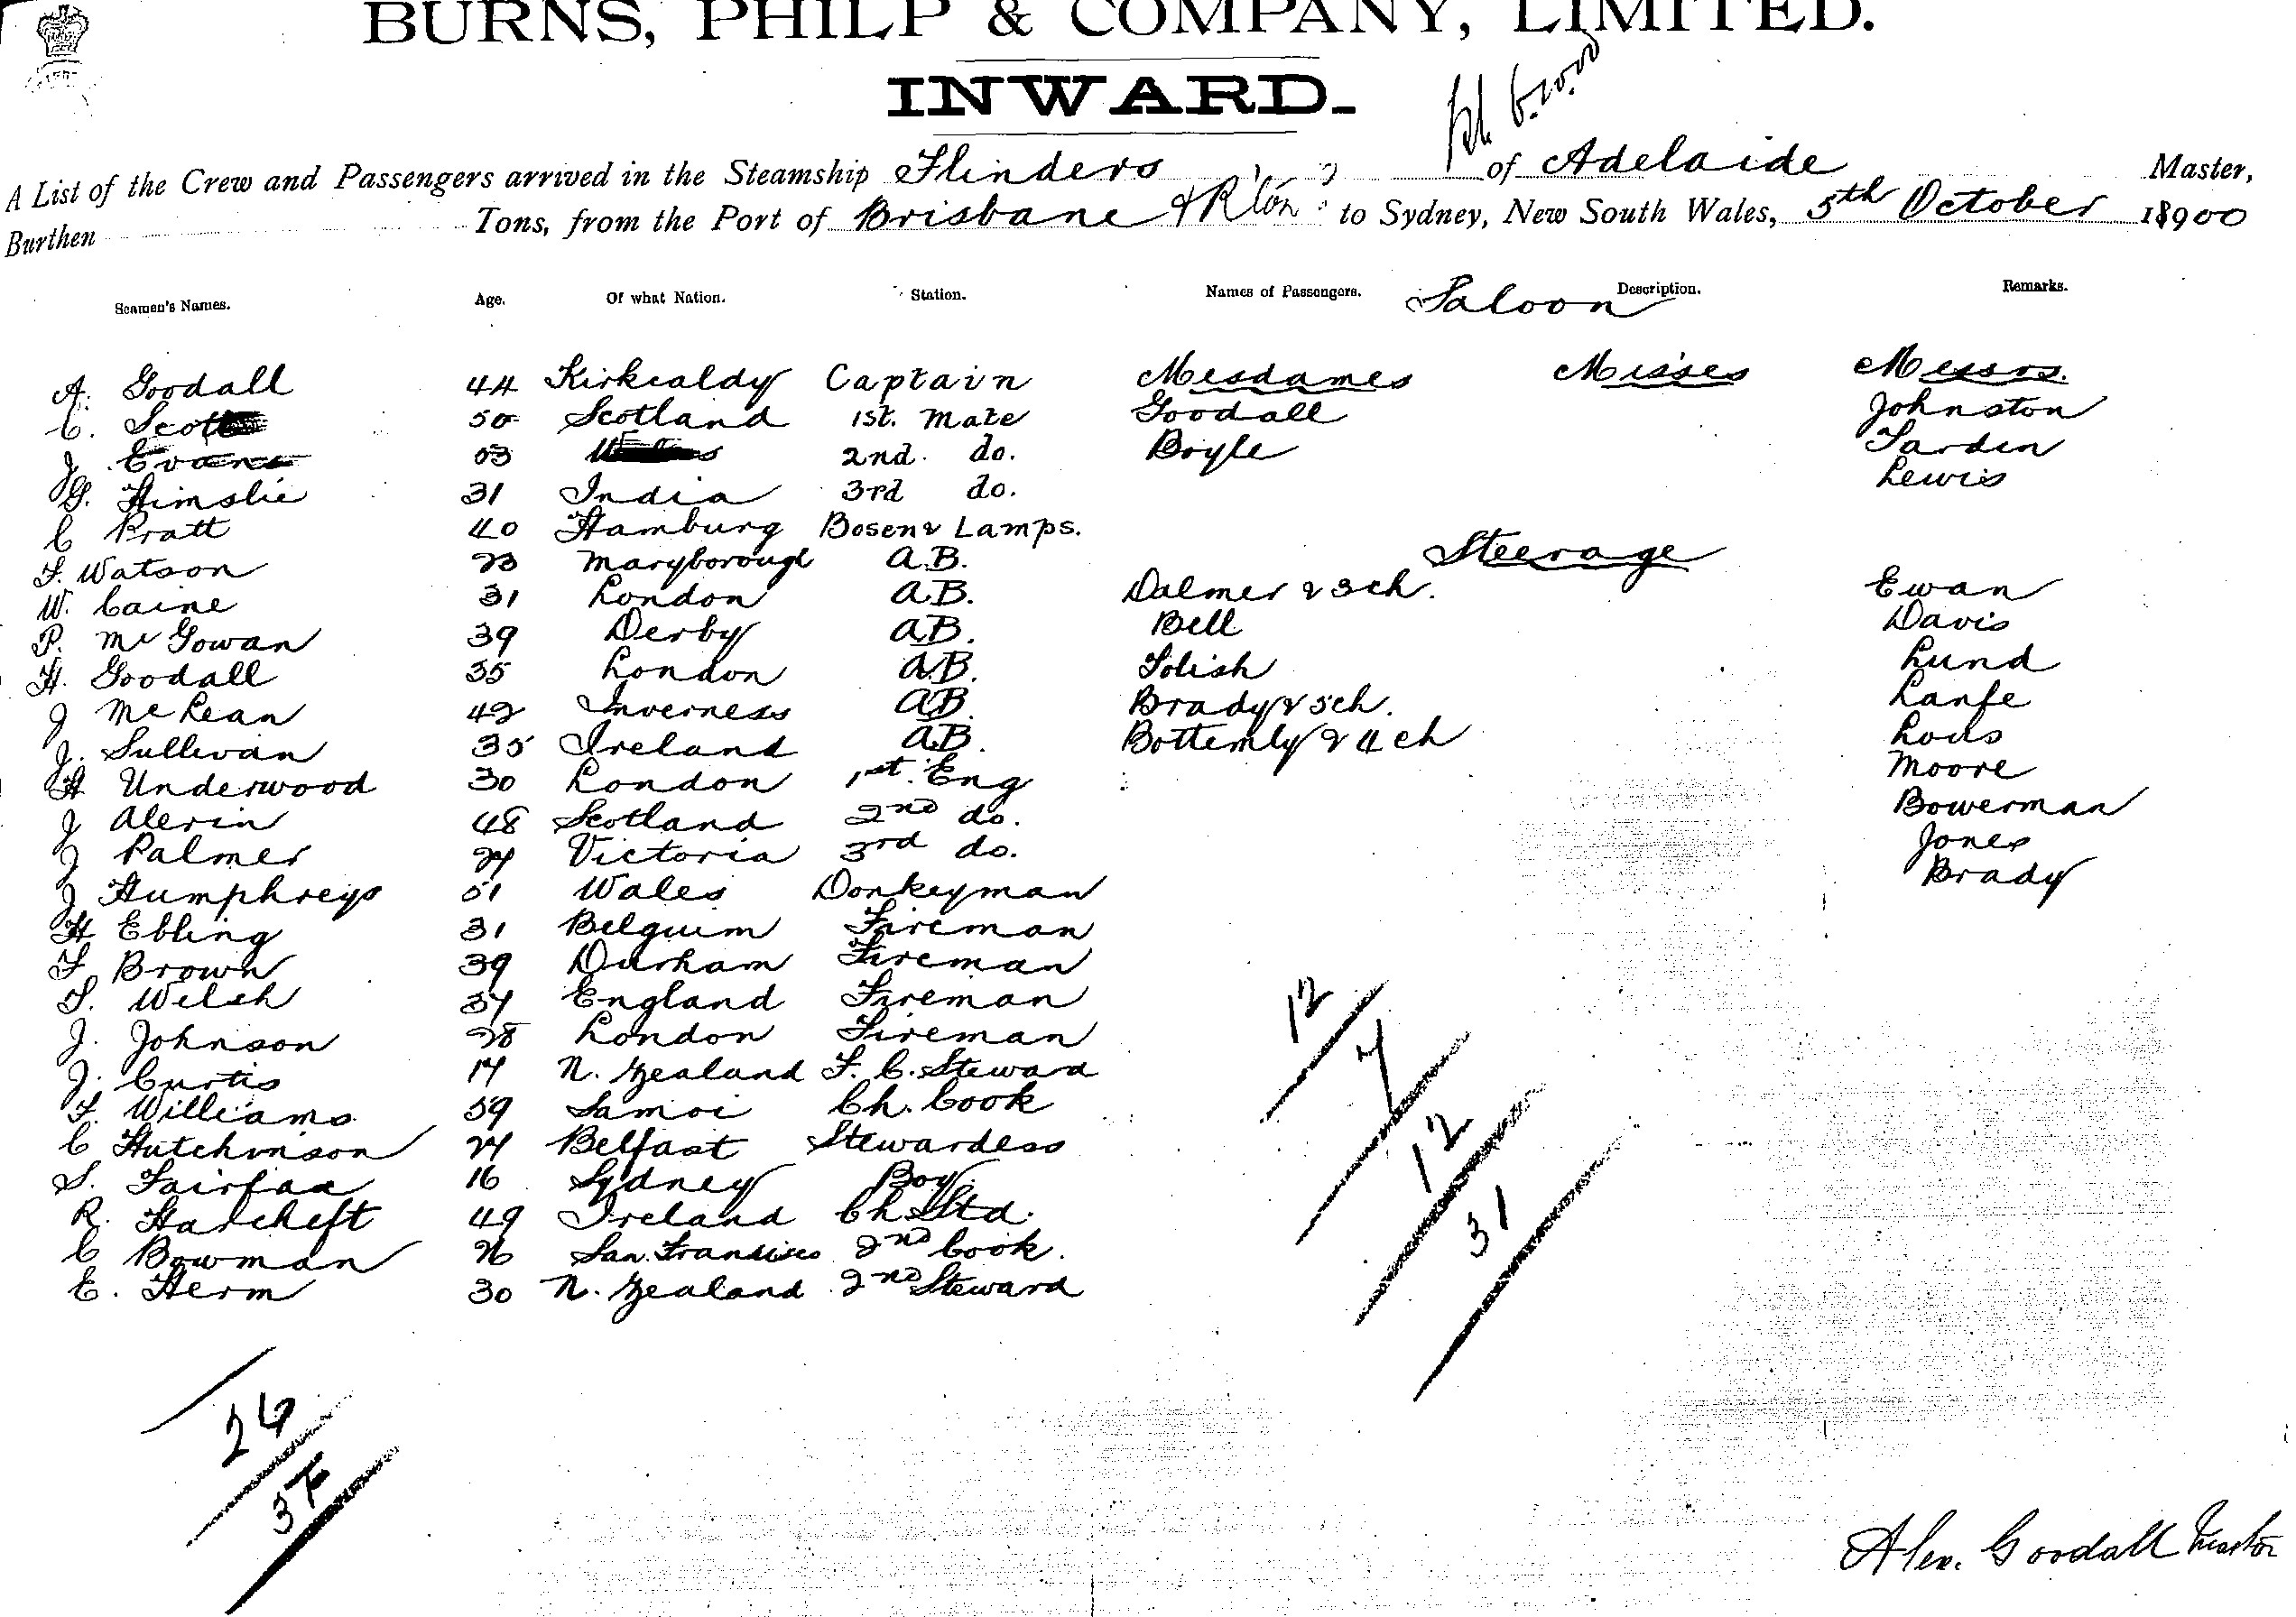 BURNS, PHILP & COMPANY, LIMITED.
INWARD.
A List of the Crew and Passengers arrived in the Steamship Flinders of Adelaide Master,
Burthen Tons, from the Port of Brisbane & R'ton to Sydney, New South Wales, 5th October 18900
Seamen's Names. Age. Of what Nation. Station. Names of Passengers. Saloon Description. Remarks.
A. Goodall 44 Kirkcaldy Captain Mesdames Misses Messrs.
C. Scott 50 Scotland 1st. Mate Goodall Johnston
J. Evans 53 2nd. do. Boyle Tardin
G. Himslie 31 India 3rd do. Lewis
C Pratt 40 Hamburg Bosen & Lamps.
F. Watson 23 Maryborough A.B. Steerage
W. Caine 31 London A.B. Dalmer & 3 ch. Ewan
P. McGowan 39 Derby A.B. Bell Davis
H. Goodall 35 London A.B. Tolish Lund
J McLean 42 Inverness A.B. Brady & 5 ch. Lanfe
J. Sullivan 35 Ireland A.B. Bottemly & 4 ch Lous
H Underwood 30 London 1st. Eng Moore
J Alerin 48 Scotland 2nd do. Bowerman
J Palmer 27 Victoria 3rd do. Jones
J Humphreys 51 Wales Donkeyman Brady
H Ebling 31 Belguim Fireman
F. Brown 39 Durham Fireman
T. Welsh 37 England Fireman
J. Johnson 28 London Fireman
J. Curtis 17 N. Zealand F. C. Steward
F. Williams 59 Samoi Ch. Cook
C Hutchinson 27 Belfast Stewardess
S. Fairfax 16 Sydney Boy
R. Hatcheft 49 Ireland Ch Std.
C Bowman 26 San. Francisco 2nd Cook.
E. Herm 30 N. Zealand 2nd Steward
12
7
12
31
26
37
Alex. Goodall Master